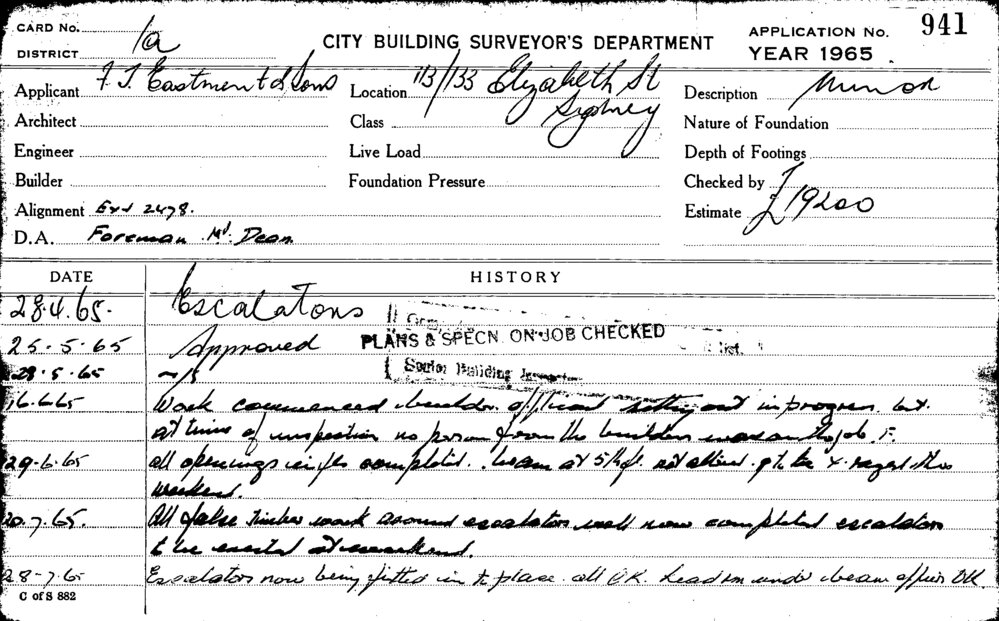 CARD No. 1a
DISTRICT
CITY BUILDING SURVEYOR'S DEPARTMENT
APPLICATION No. 941
YEAR 1965
Applicant F. J. Eastment & Sons
Location 113/133 Elizabeth St
Sydney
Description Minor
Architect
Class
Nature of Foundation
Engineer
Live Load
Depth of Footings
Builder
Foundation Pressure
Checked by
Alignment Ext 2478.
Estimate £19200
D.A. Foreman Mr. Dean
DATE HISTORY
28.4.65. Escalators
25-5-65 Approved
PLANS & SPECN. ON JOB CHECKED
Senior Building
28.5.65 n/s
16.6.65 Work commenced setting out in progress but
at time of inspection no person from the builders was on the job
29-6-65 all openings in completed. beam at 5th fl. X-rayed this
weekend.
20.7.65. All false timber work around escalators well now completed escalators
to be erected at weekend.
28-7-65 Escalators now being fitted in to place all OK. under beam OK.
C of S 882